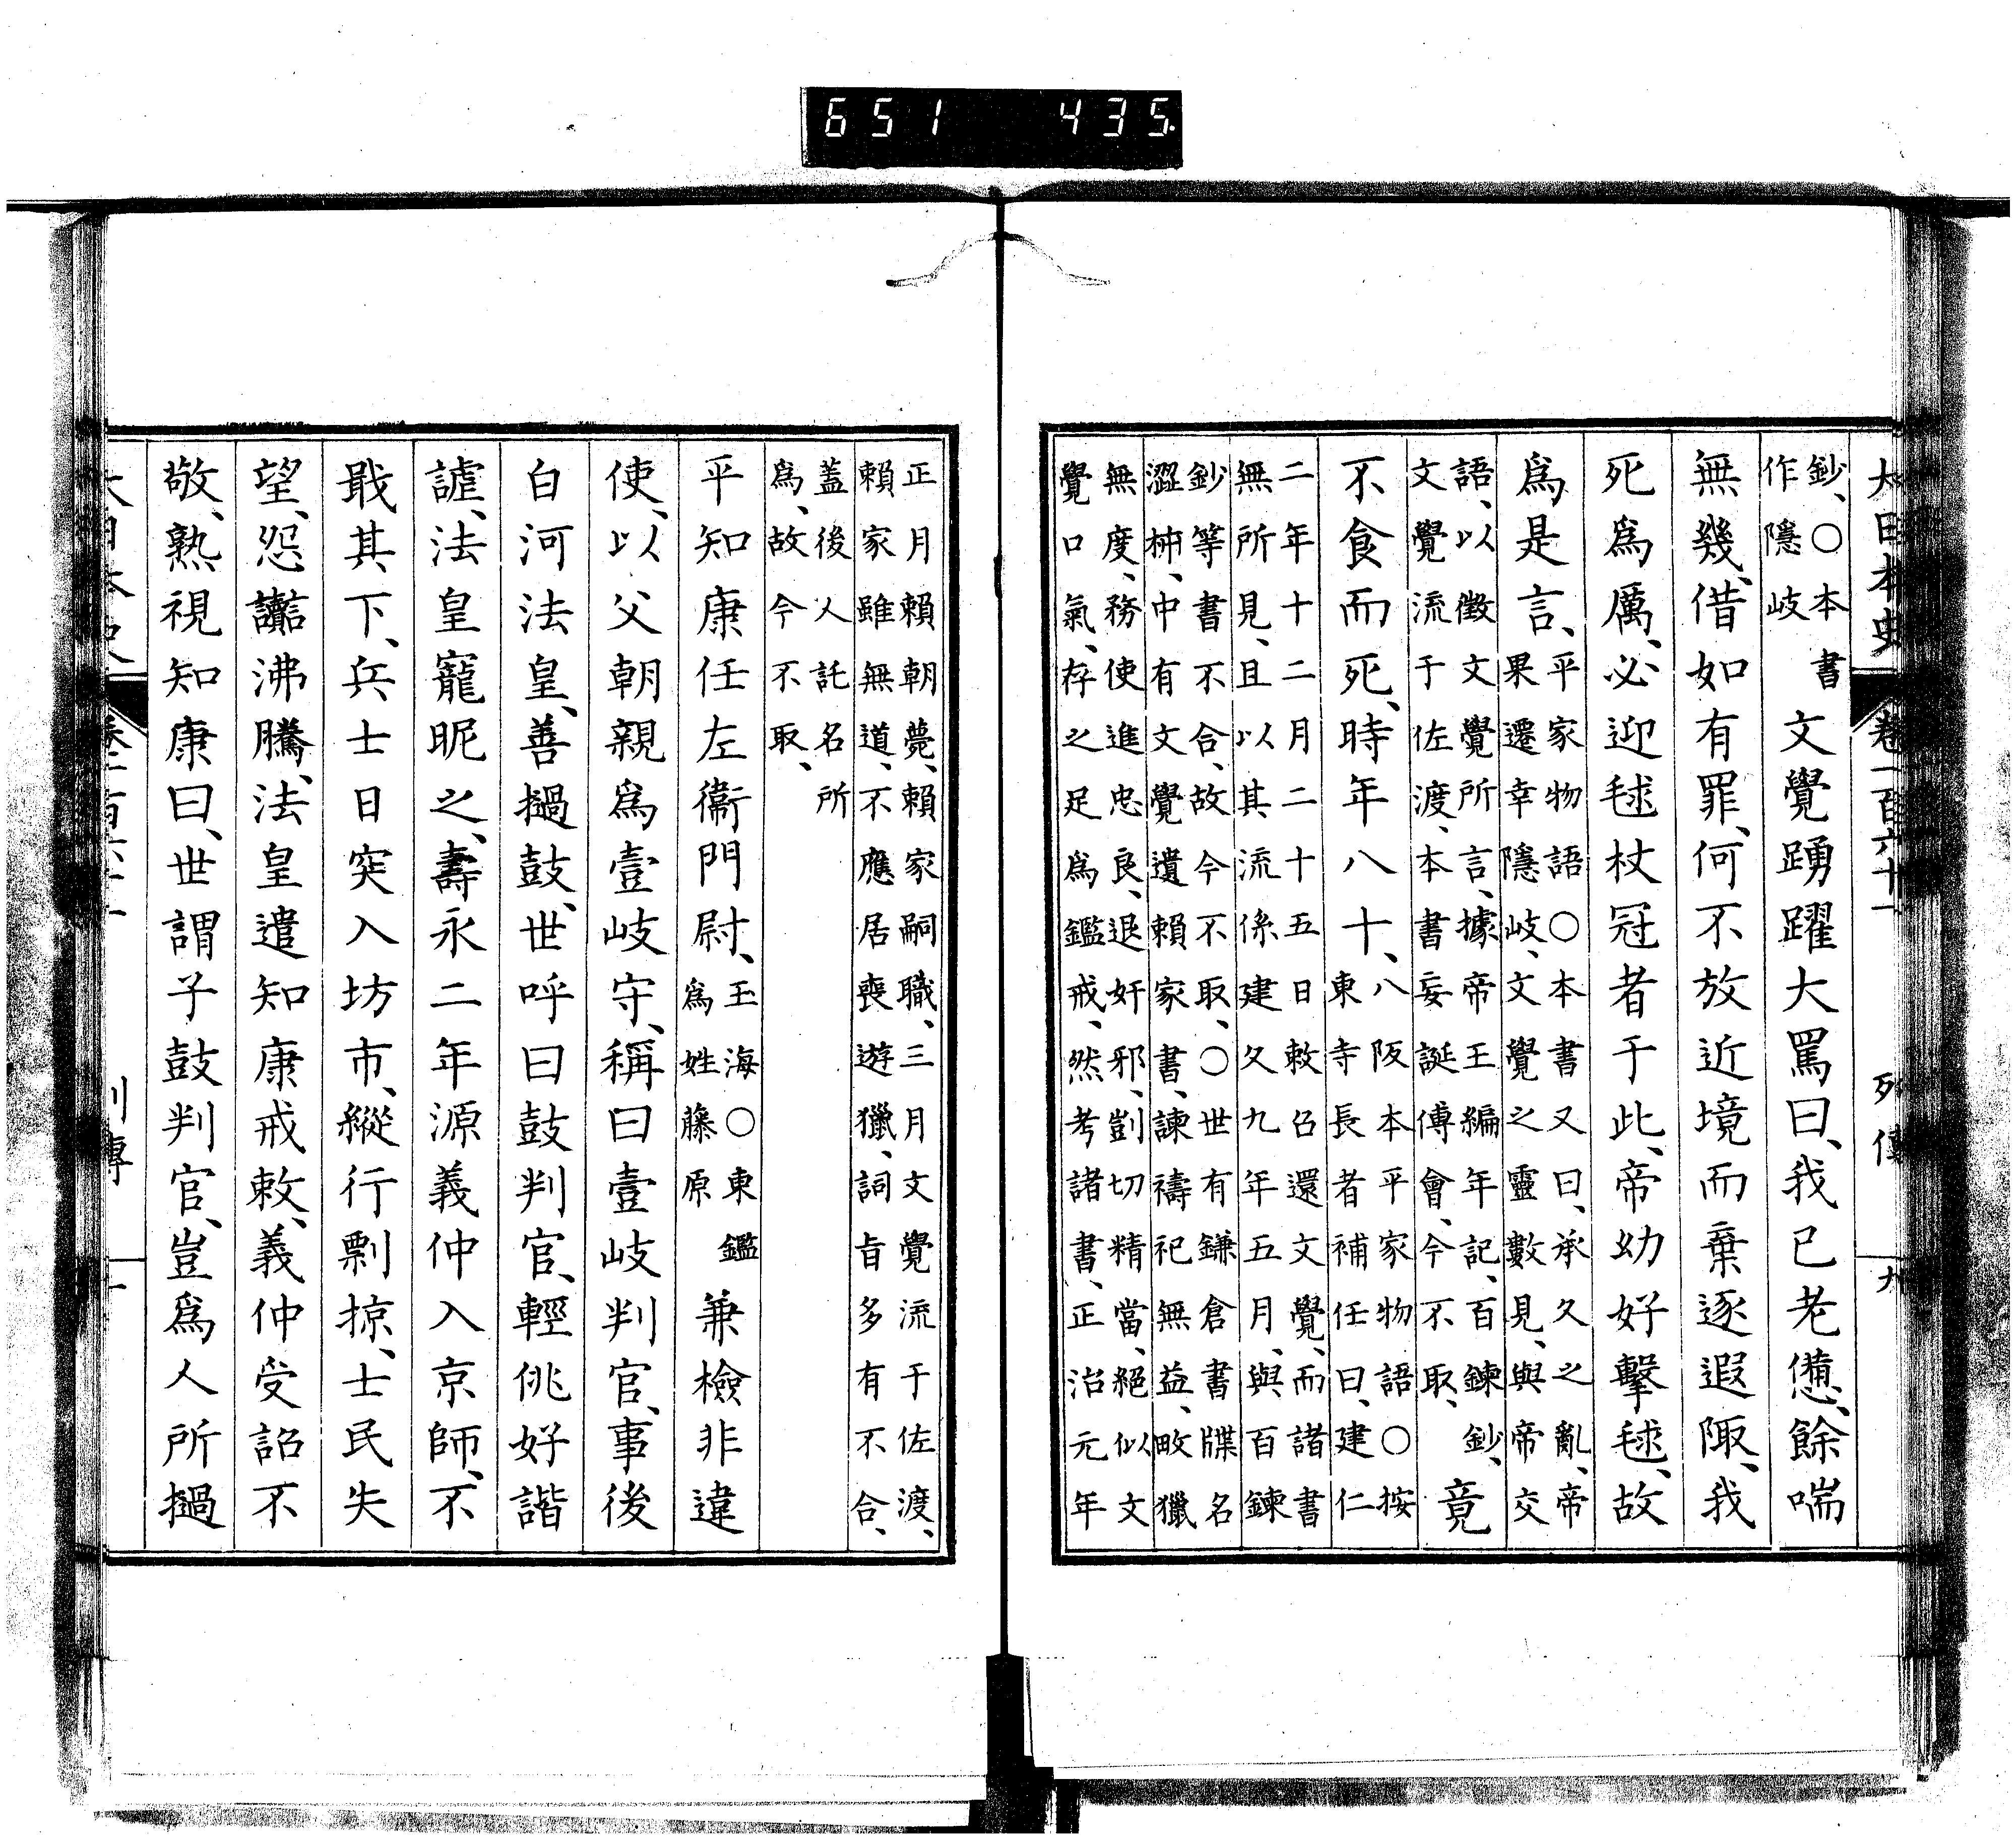 651 435
大日本史 卷一百六十一 列傳 九
鈔、○本書
作隱岐
文覺踴躍大罵曰、我已老憊、餘喘
無幾、借如有罪、何不放近境而棄逐遐陬、我
死爲厲、必迎毬杖冠者于此、帝幼好擊毬、故
爲是言、
平家物語○本書又曰、承久之亂、帝
果遷幸隱岐、文覺之靈數見、與帝交
語、以徵文覺所言、據帝王編年記、百鍊鈔、
文覺流于佐渡、本書妄誕傅會、今不取、
竟
不食而死、時年八十、
八阪本平家物語○按
東寺長者補任曰、建仁
二年十二月二十五日敕召還文覺、而諸書
無所見、且以其流係建久九年五月、與百鍊
鈔等書不合、故今不取、○世有鎌倉書牒名
澀柿、中有文覺遺賴家書、諫禱祀無益、畋獵
無度、務使進忠良、退奸邪、剴切精當、絕似文
覺口氣、存之足爲鑑戒、然考諸書、正治元年
正月賴朝薨、賴家嗣職、三月文覺流于佐渡、
賴家雖無道、不應居喪遊獵、詞旨多有不合、
蓋後人託名所
爲、故今不取、
平知康任左衞門尉、
玉海○東鑑
爲姓藤原
兼檢非違
使、以父朝親爲壹岐守、稱曰壹岐判官、事後
白河法皇、善撾鼓、世呼曰鼓判官、輕佻好諧
謔、法皇寵昵之、壽永二年源義仲入京師、不
戢其下、兵士日突入坊市、縱行剽掠、士民失
望、怨讟沸騰、法皇遣知康戒敕、義仲受詔不
敬、熟視知康曰、世謂子鼓判官、豈爲人所撾